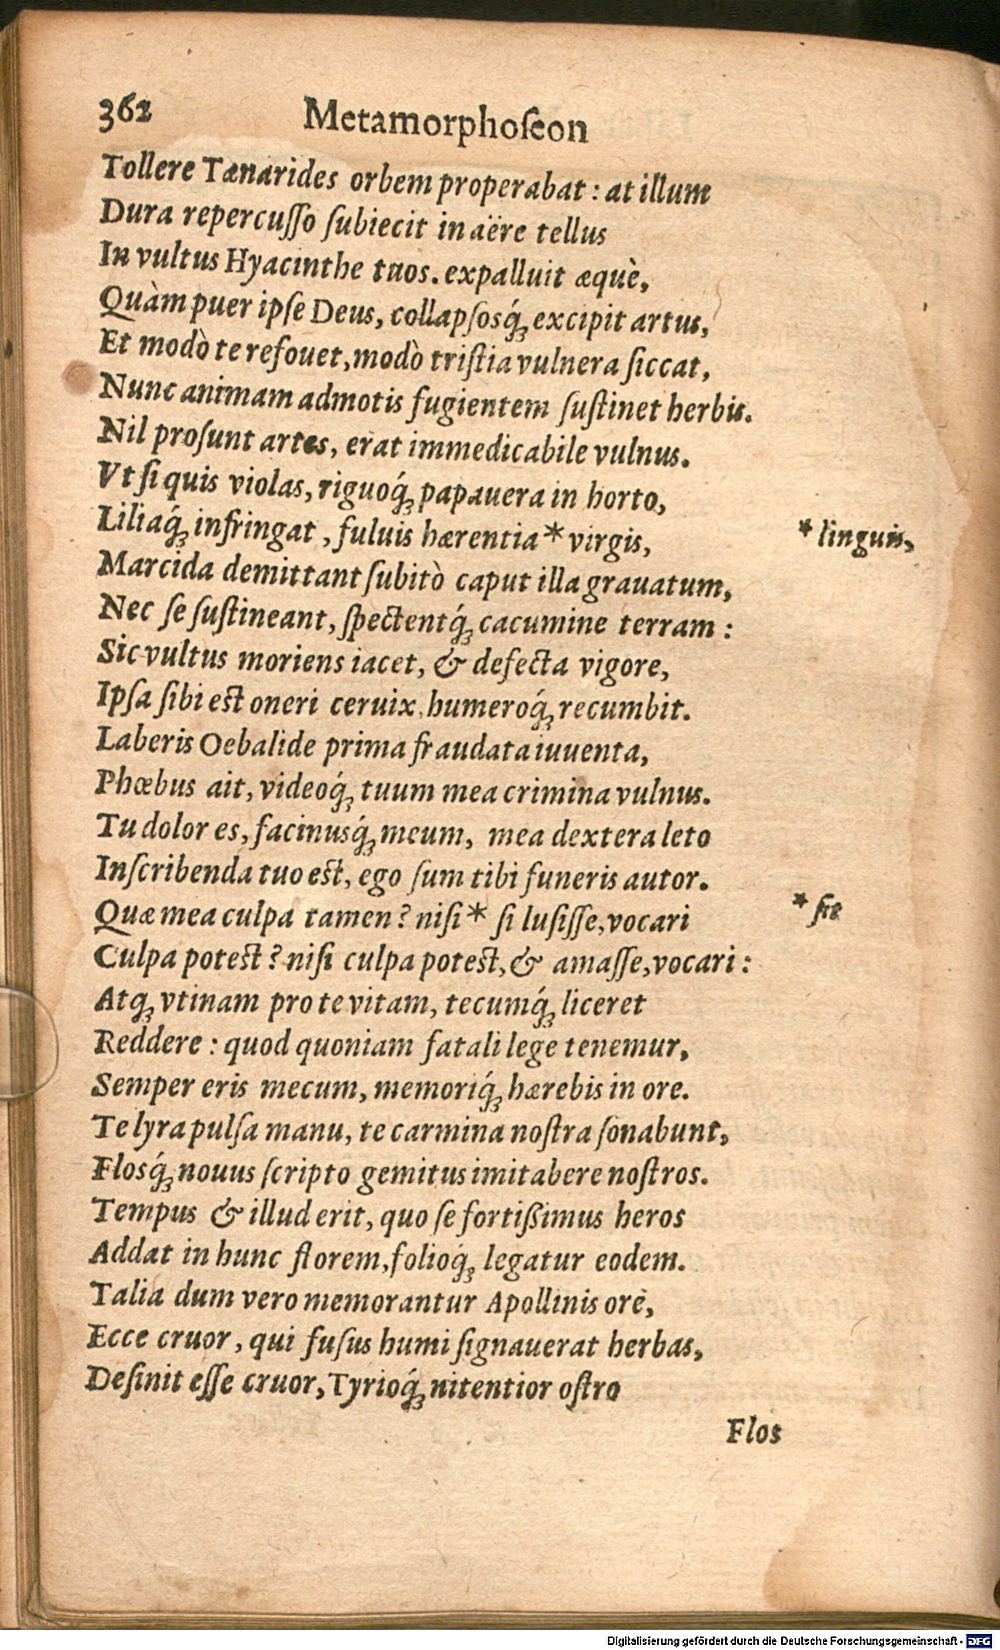 362 Metamorphoſeon
Tollere Tænarides orbem properabat : at illum
Dura repercuſſo ſubiecit in aëre tellus
In vultus Hyacinthe tuos. expalluit æquè,
Quàm puer ipſe Deus, collapſosq́ꝫ excipit artus,
Et modò te refouet, modò triſtia vulnera ſiccat,
Nunc animam admotis fugientem ſuſtinet herbis.
Nil proſunt artes, erat immedicabile vulnus.
Vt ſi quis violas, riguoq́ꝫ papauera in horto,
Liliaq́ꝫ infringat, fuluis hærentia * virgis, * linguis,
Marcida demittant ſubitò caput illa grauatum,
Nec ſe ſuſtineant, ſpectentq́ꝫ cacumine terram :
Sic vultus moriens iacet, & defecta vigore,
Ipſa ſibi eſt oneri ceruix, humeroq́ꝫ recumbit.
Laberis Oebalide prima fraudata iuuenta,
Phœbus ait, videoq́ꝫ tuum mea crimina vulnus.
Tu dolor es, facinusq́ꝫ meum, mea dextera leto
Inſcribenda tuo eſt, ego ſum tibi funeris autor.
Quæ mea culpa tamen? niſi * ſi luſiſſe, vocari
Culpa poteſt? niſi culpa poteſt, & amaſſe, vocari :
Atqꝫ vtinam pro te vitam, tecumq́ꝫ liceret
Reddere : quod quoniam fatali lege tenemur,
Semper eris mecum, memoriq́ꝫ hærebis in ore.
Te lyra pulſa manu, te carmina noſtra ſonabunt,
Flosq́ꝫ nouus ſcripto gemitus imitabere noſtros.
Tempus & illud erit, quo ſe fortißimus heros
Addat in hunc florem, folioq́ꝫ legatur eodem.
Talia dum vero memorantur Apollinis ore,
Ecce cruor, qui fuſus humi ſignauerat herbas,
Deſinit eſſe cruor, Tyrioq́ꝫ nitentior oſtro
Flos
Digitalisierung gefördert durch die Deutsche Forschungsgemeinschaft - DFG